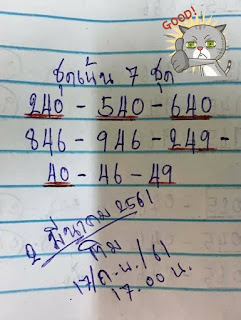 GOOD!
ชุดเน้น 7 ชุด
240 - 540 - 640
846 - 946 - 249 -
40 - 46 - 49
2 มีนาคม 2561
โดม
17/ก.พ./61
17.00 น.